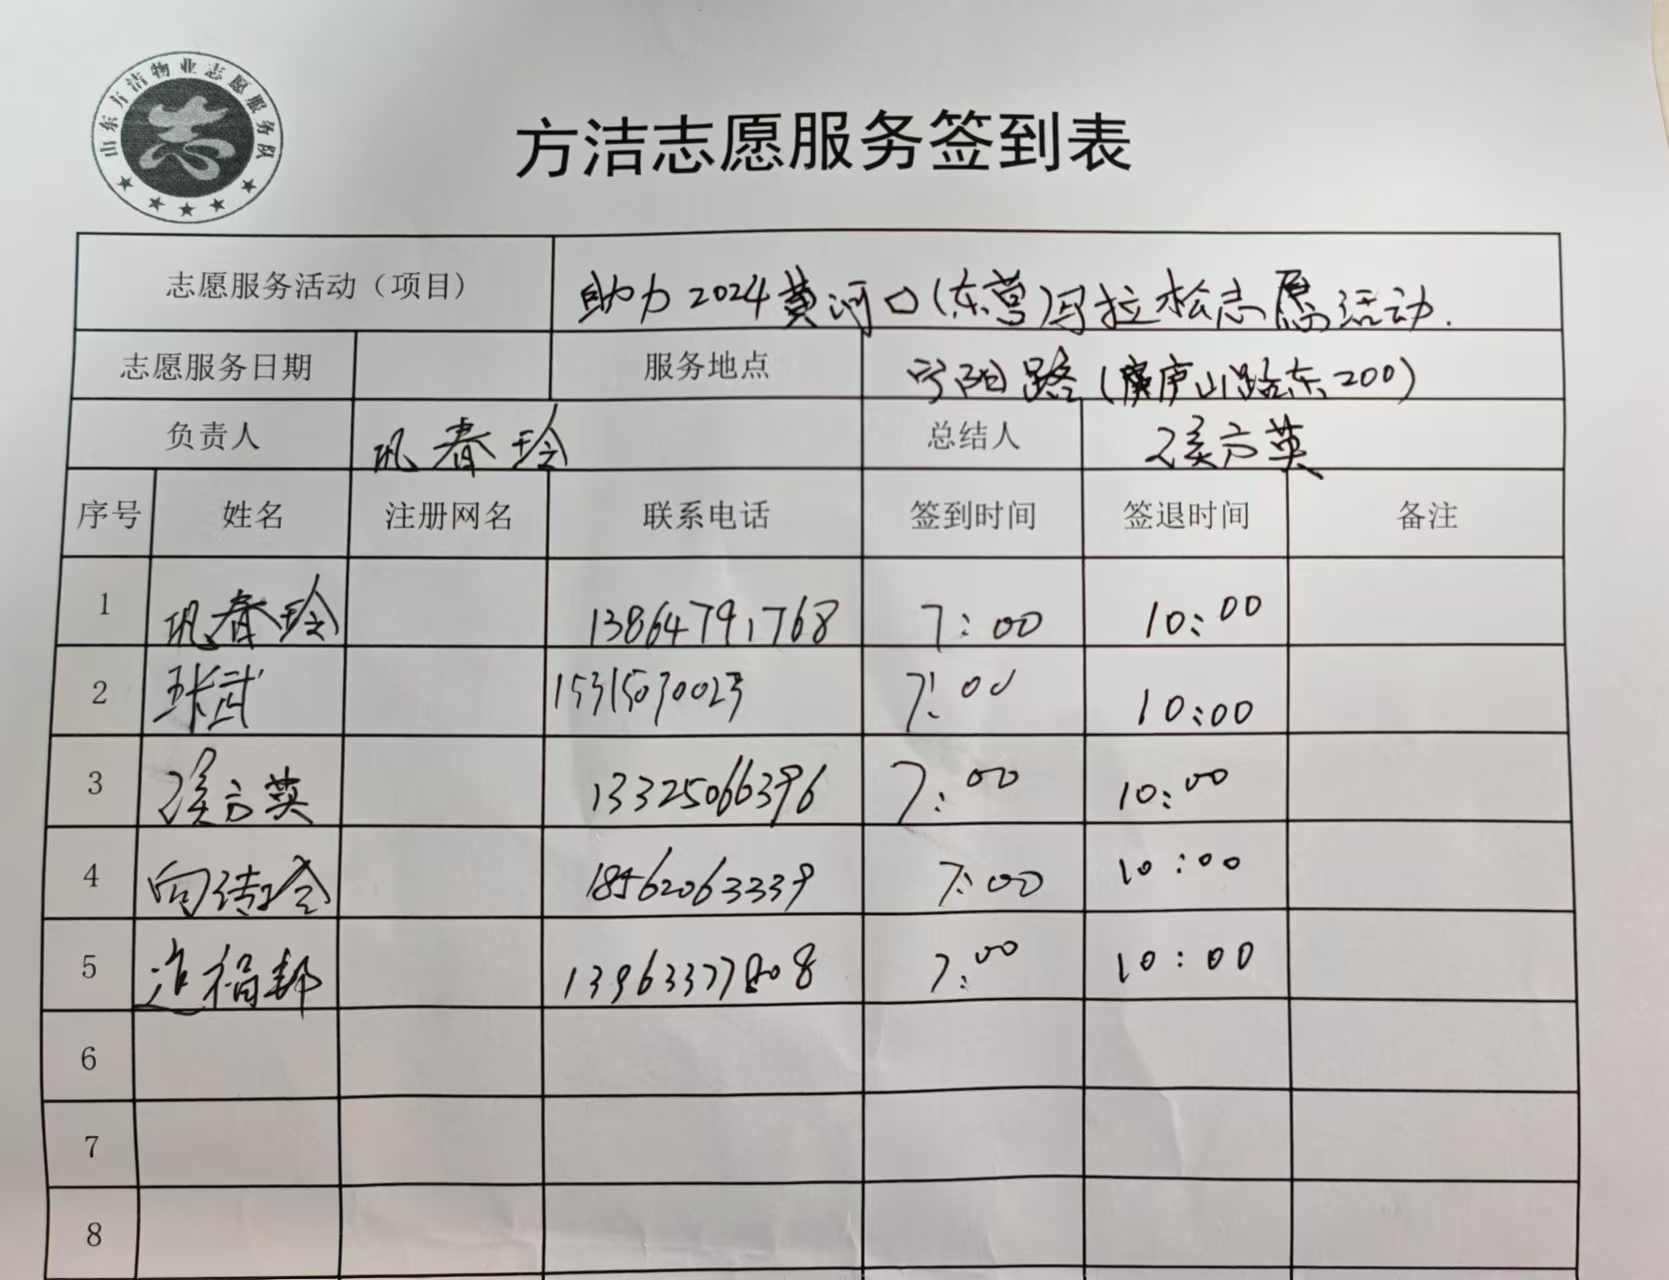 山东方洁物业志愿服务队
志
方洁志愿服务签到表
志愿服务活动（项目） 助力2024黄河口(东营)马拉松志愿活动.
志愿服务日期 服务地点 宁阳路(庐山路东200)
负责人 巩春玲 总结人 侯方英
序号 姓名 注册网名 联系电话 签到时间 签退时间 备注
1 巩春玲 13864791768 7:00 10:00
2 张武 15315030023 7:00 10:00
3 侯方英 13325066396 7:00 10:00
4 向 18562063339 7:00 10:00
5 福邦 13963377808 7:00 10:00
6
7
8